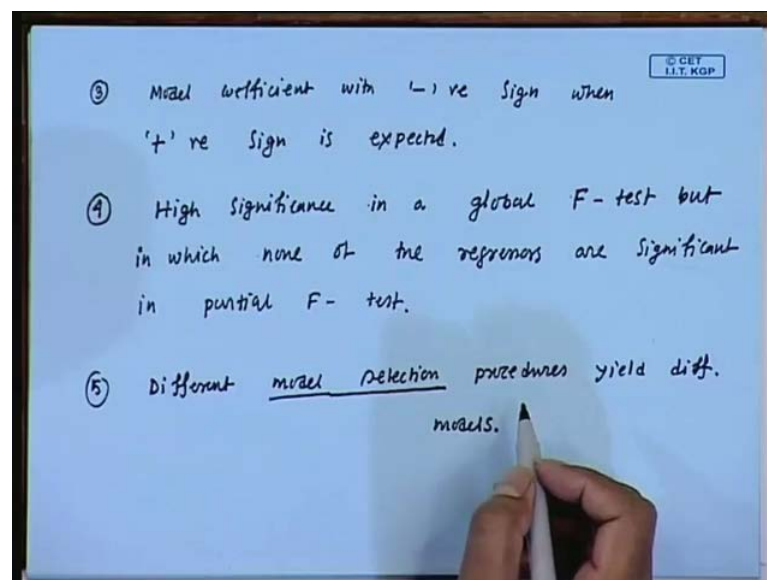 © CET
I.I.T. KGP
③ Model coefficient with '-' ve Sign when
'+' ve Sign is expected.
④ High Significance in a global F-test but
in which none of the regressors are Significant
in partial F-test.
⑤ Different model selection procedures yield diff.
models.